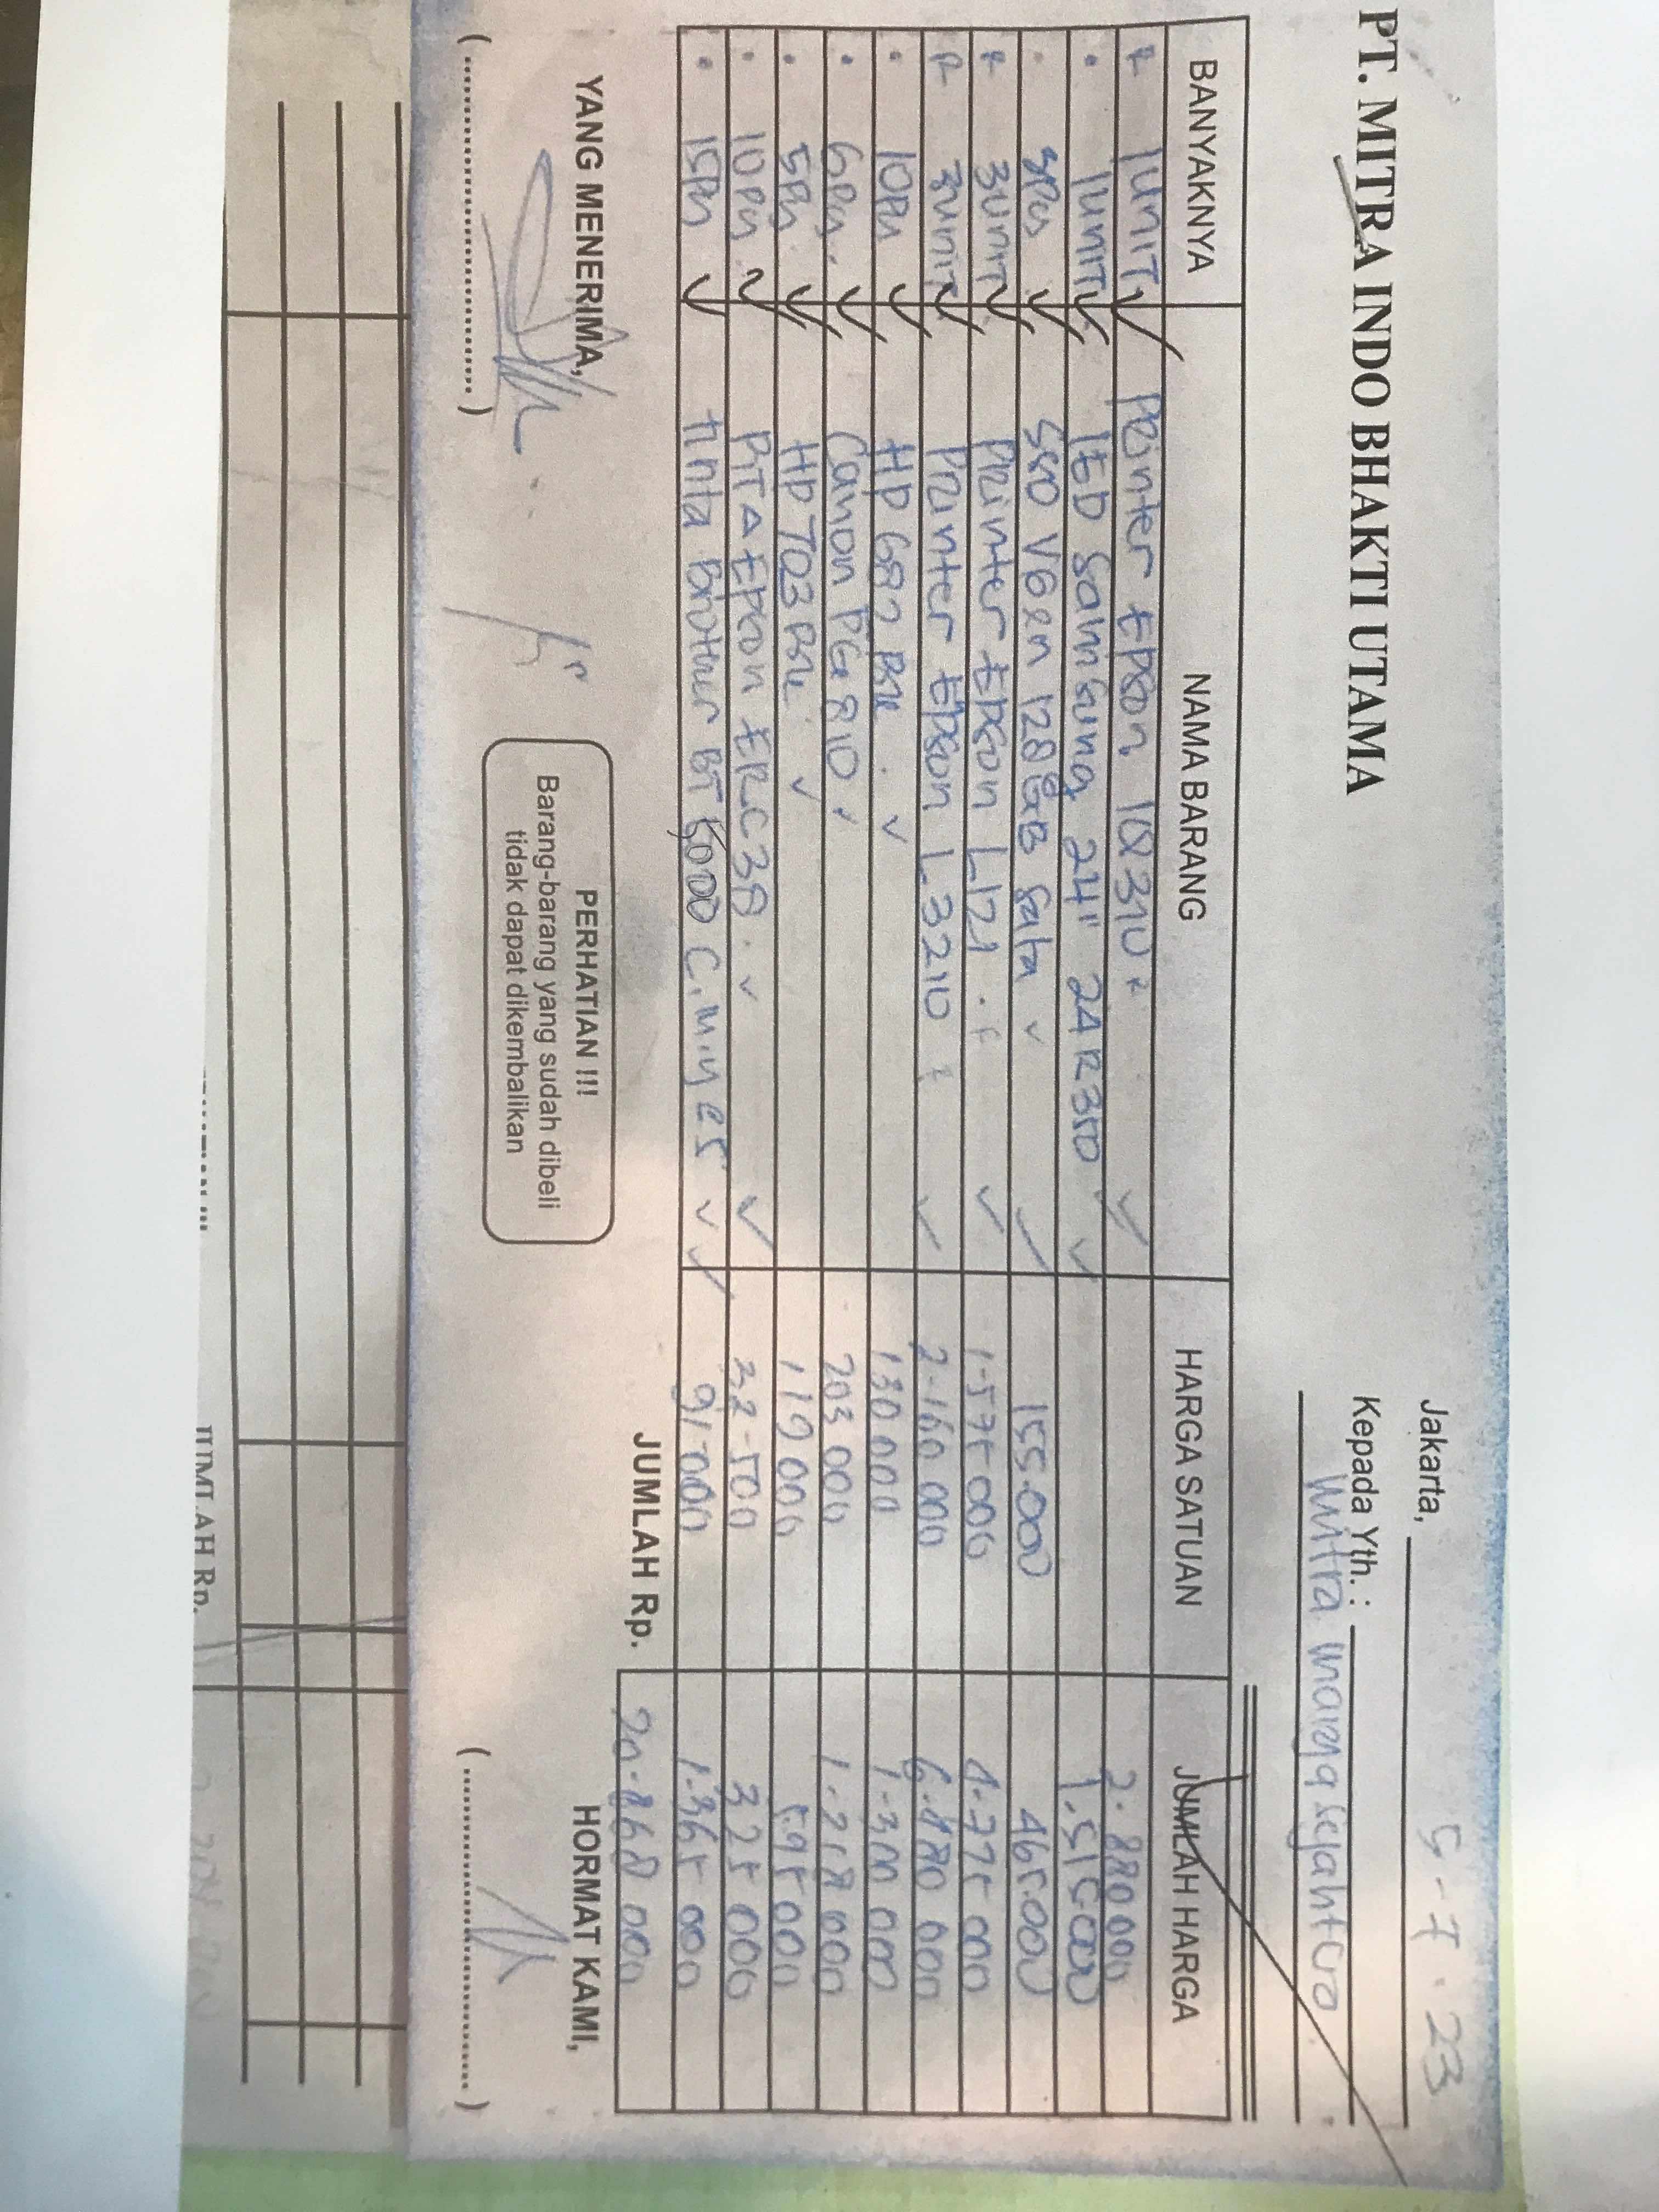 PT. MITRA INDO BHAKTI UTAMA
Jakarta, 5-7.23
Kepada Yth. :
Mitra marga sejahtra
BANYAKNYA NAMA BARANG HARGA SATUAN JUMLAH HARGA
1 UNIT Printer Epson LQ 310 2.880.000
1 UNIT LED Samsung 24" 24 R350 1.515.000
3 Pcs SSD VGen 128 GB Sata 155.000 465.000
3 UNIT Printer Epson L121 1.575.000 4.725.000
3 UNIT Printer Epson L3210 2.160.000 6.480.000
10 Pcs HP 682 Blk 130.000 1.300.000
6 Pcs Canon PG 810 203.000 1.218.000
5 Pcs HP 703 Blk 119.000 595.000
10 Pcs PITA Epson ERC 38 32.500 325.000
15 Pcs tinta Brother BT 5000 C,M,Y 91.000 1.365.000
JUMLAH Rp. 20.868.000
YANG MENERIMA,
HORMAT KAMI,
PERHATIAN !!!
Barang-barang yang sudah dibeli
tidak dapat dikembalikan
(....................) (....................)
JUMLAH Rp.